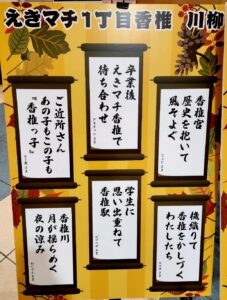 えきマチ1丁目香椎 川柳
香椎宮
歴史を抱いて
風そよぐ
卒業後
えきマチ香椎で
待ち合わせ
ご近所さん
あの子もこの子も
“香椎っ子”
機織りて
香椎をかしづく
わたしたち
学生に
思い出重ねて
香椎駅
香椎川
月が揺らめく
夜の涼み